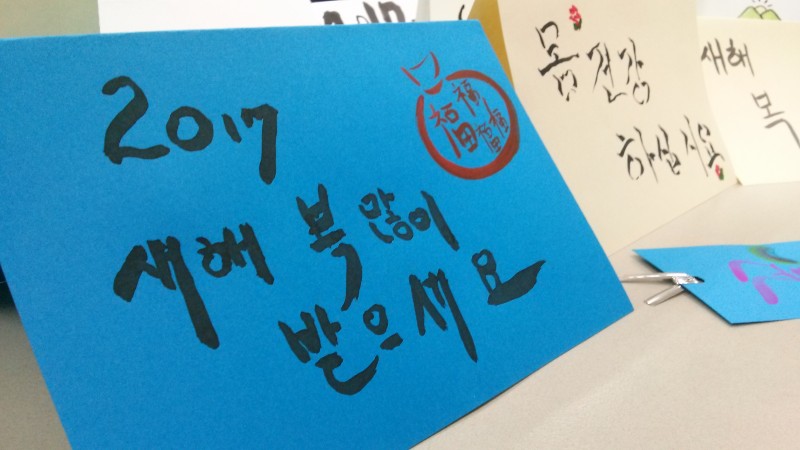 2017
새해 복 많이
받으세요
福福福福
몸 건강
하십시요
새해
복